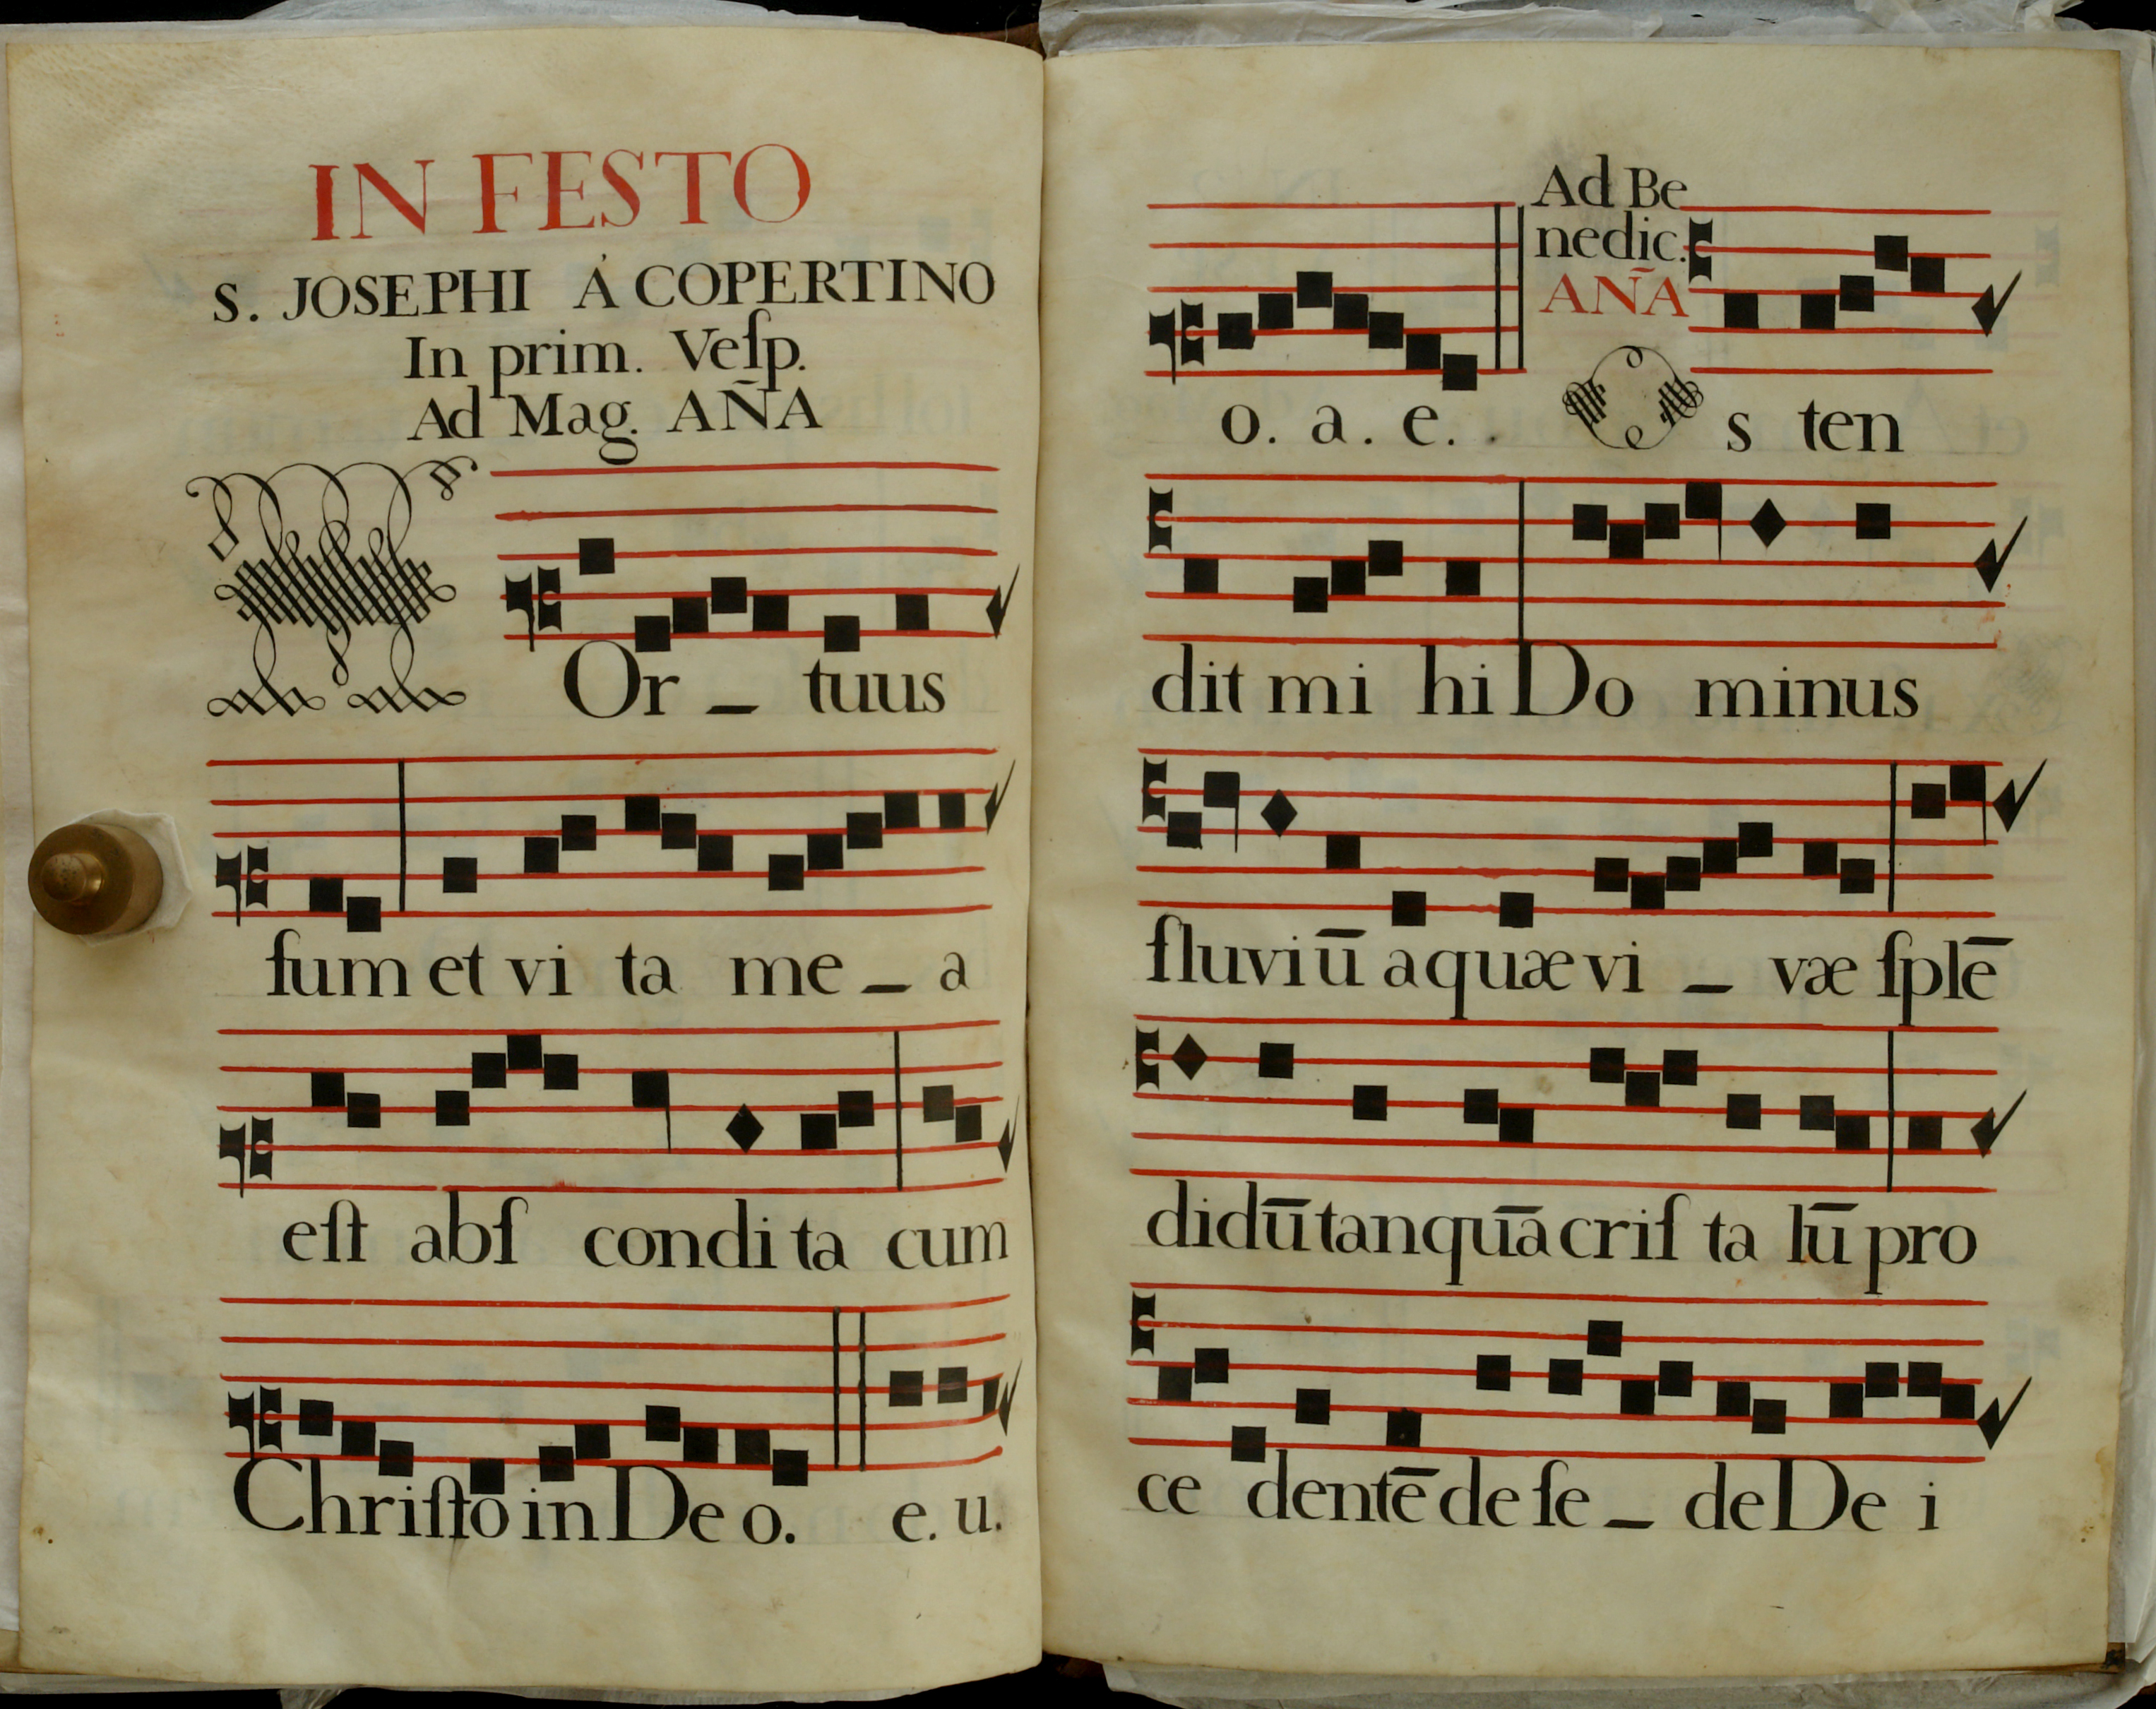 IN FESTO
S. JOSEPHI Á COPERTINO
In prim. Veſp.
Ad Mag. AÑA
MOr _ tuus
ſum et vi ta me _ a
eſt abſ condi ta cum
Chriſto in De o. e. u.
o. a. e.
Ad Be
nedic.
AÑA
O s ten
dit mi hi Do minus
fluviū aquæ vi _ væ ſplē
didū tanquā criſ ta lū pro
ce dentē de ſe _ de De i